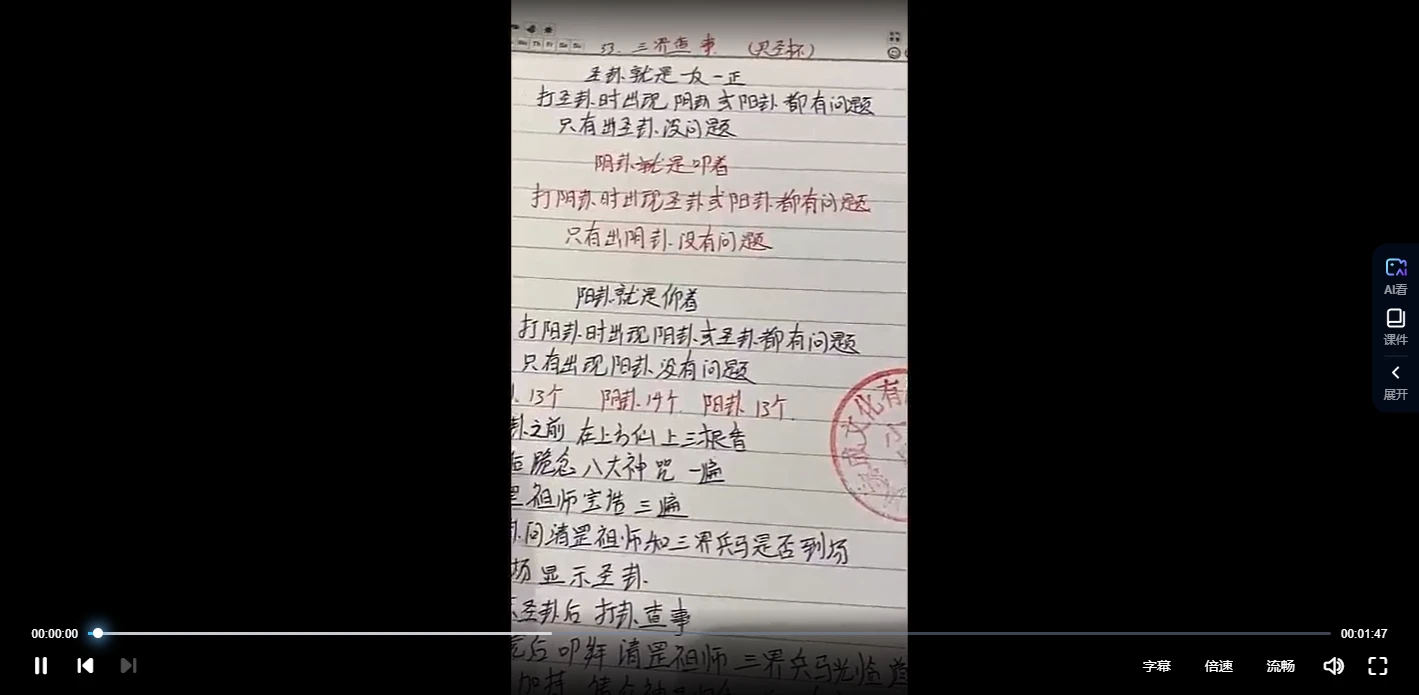 Th Fr Sa Su
53. 三界查事 (灵圣杯)
圣卦就是一反一正
打圣卦时出现阴卦或阳卦都有问题
只有出圣卦没问题
阴卦就是叩着
打阴卦时出现圣卦或阳卦都有问题
只有出阴卦没有问题
阳卦就是仰着
打阳卦时出现阴卦或圣卦都有问题
只有出现阳卦没有问题
13个 阴卦14个 阳卦13个
卦之前 在上方仙上三根香
后跪念八大神咒一遍
祖师宝诰三遍
问清罡祖师和三界兵马是否到场
场显示圣卦
圣卦后 打卦查事
完后叩拜清罡祖师 三界兵马光临
加持
文化有
AI看
课件
展开
00:00:00
00:01:47
字幕
倍速
流畅